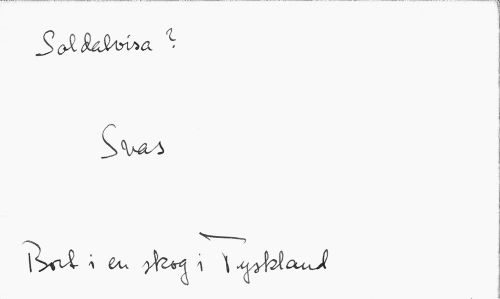 Soldatvisa?
Svas
Bort i en skog i Tyskland